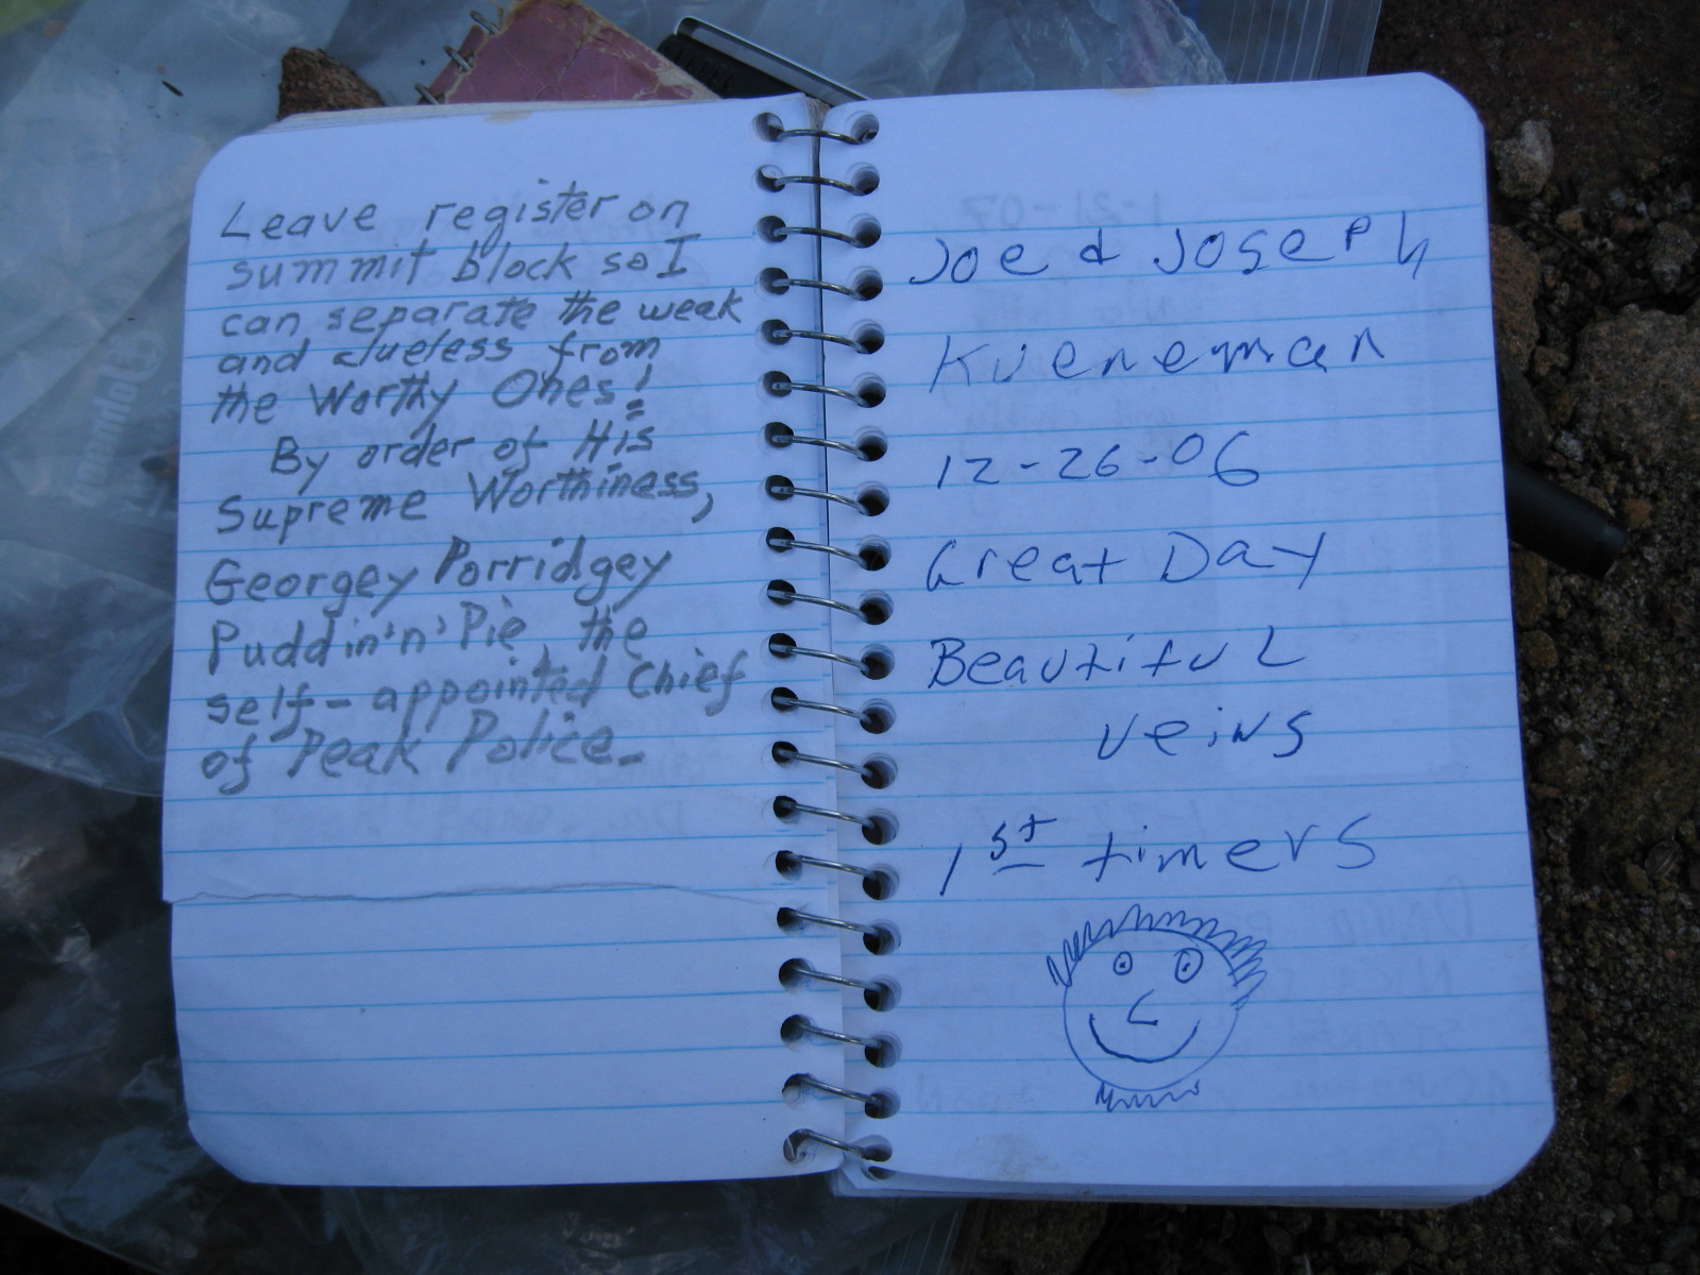 Leave register on
summit block so I
can separate the weak
and clueless from
the Worthy Ones!
By order of His
Supreme Worthiness,
Georgey Porridgey
Puddin'n'Pie, the
self-appointed Chief
of Peak Police.
Joe & Joseph
Kueneman
12-26-06
Great Day
Beautiful
veins
1st timers